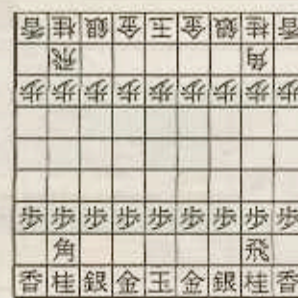 香桂銀金王金銀桂香
飛角
歩歩歩歩歩歩歩歩歩
歩歩歩歩歩歩歩歩歩
角飛
香桂銀金玉金銀桂香